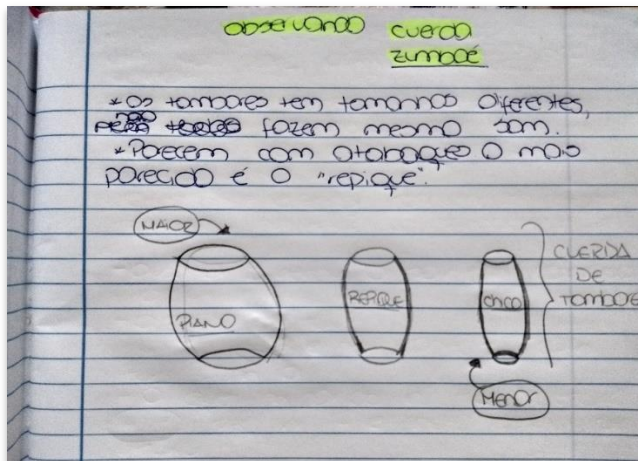 observando cuerda
zumbaé
* os tambores tem tamanhos diferentes,
não fazem mesmo som.
* Parecem com atabaques o mais
parecido é o "repique".
MAIOR
PIANO
REPIQUE
CHICO
CUERDA
DE
TAMBORE
MENOR